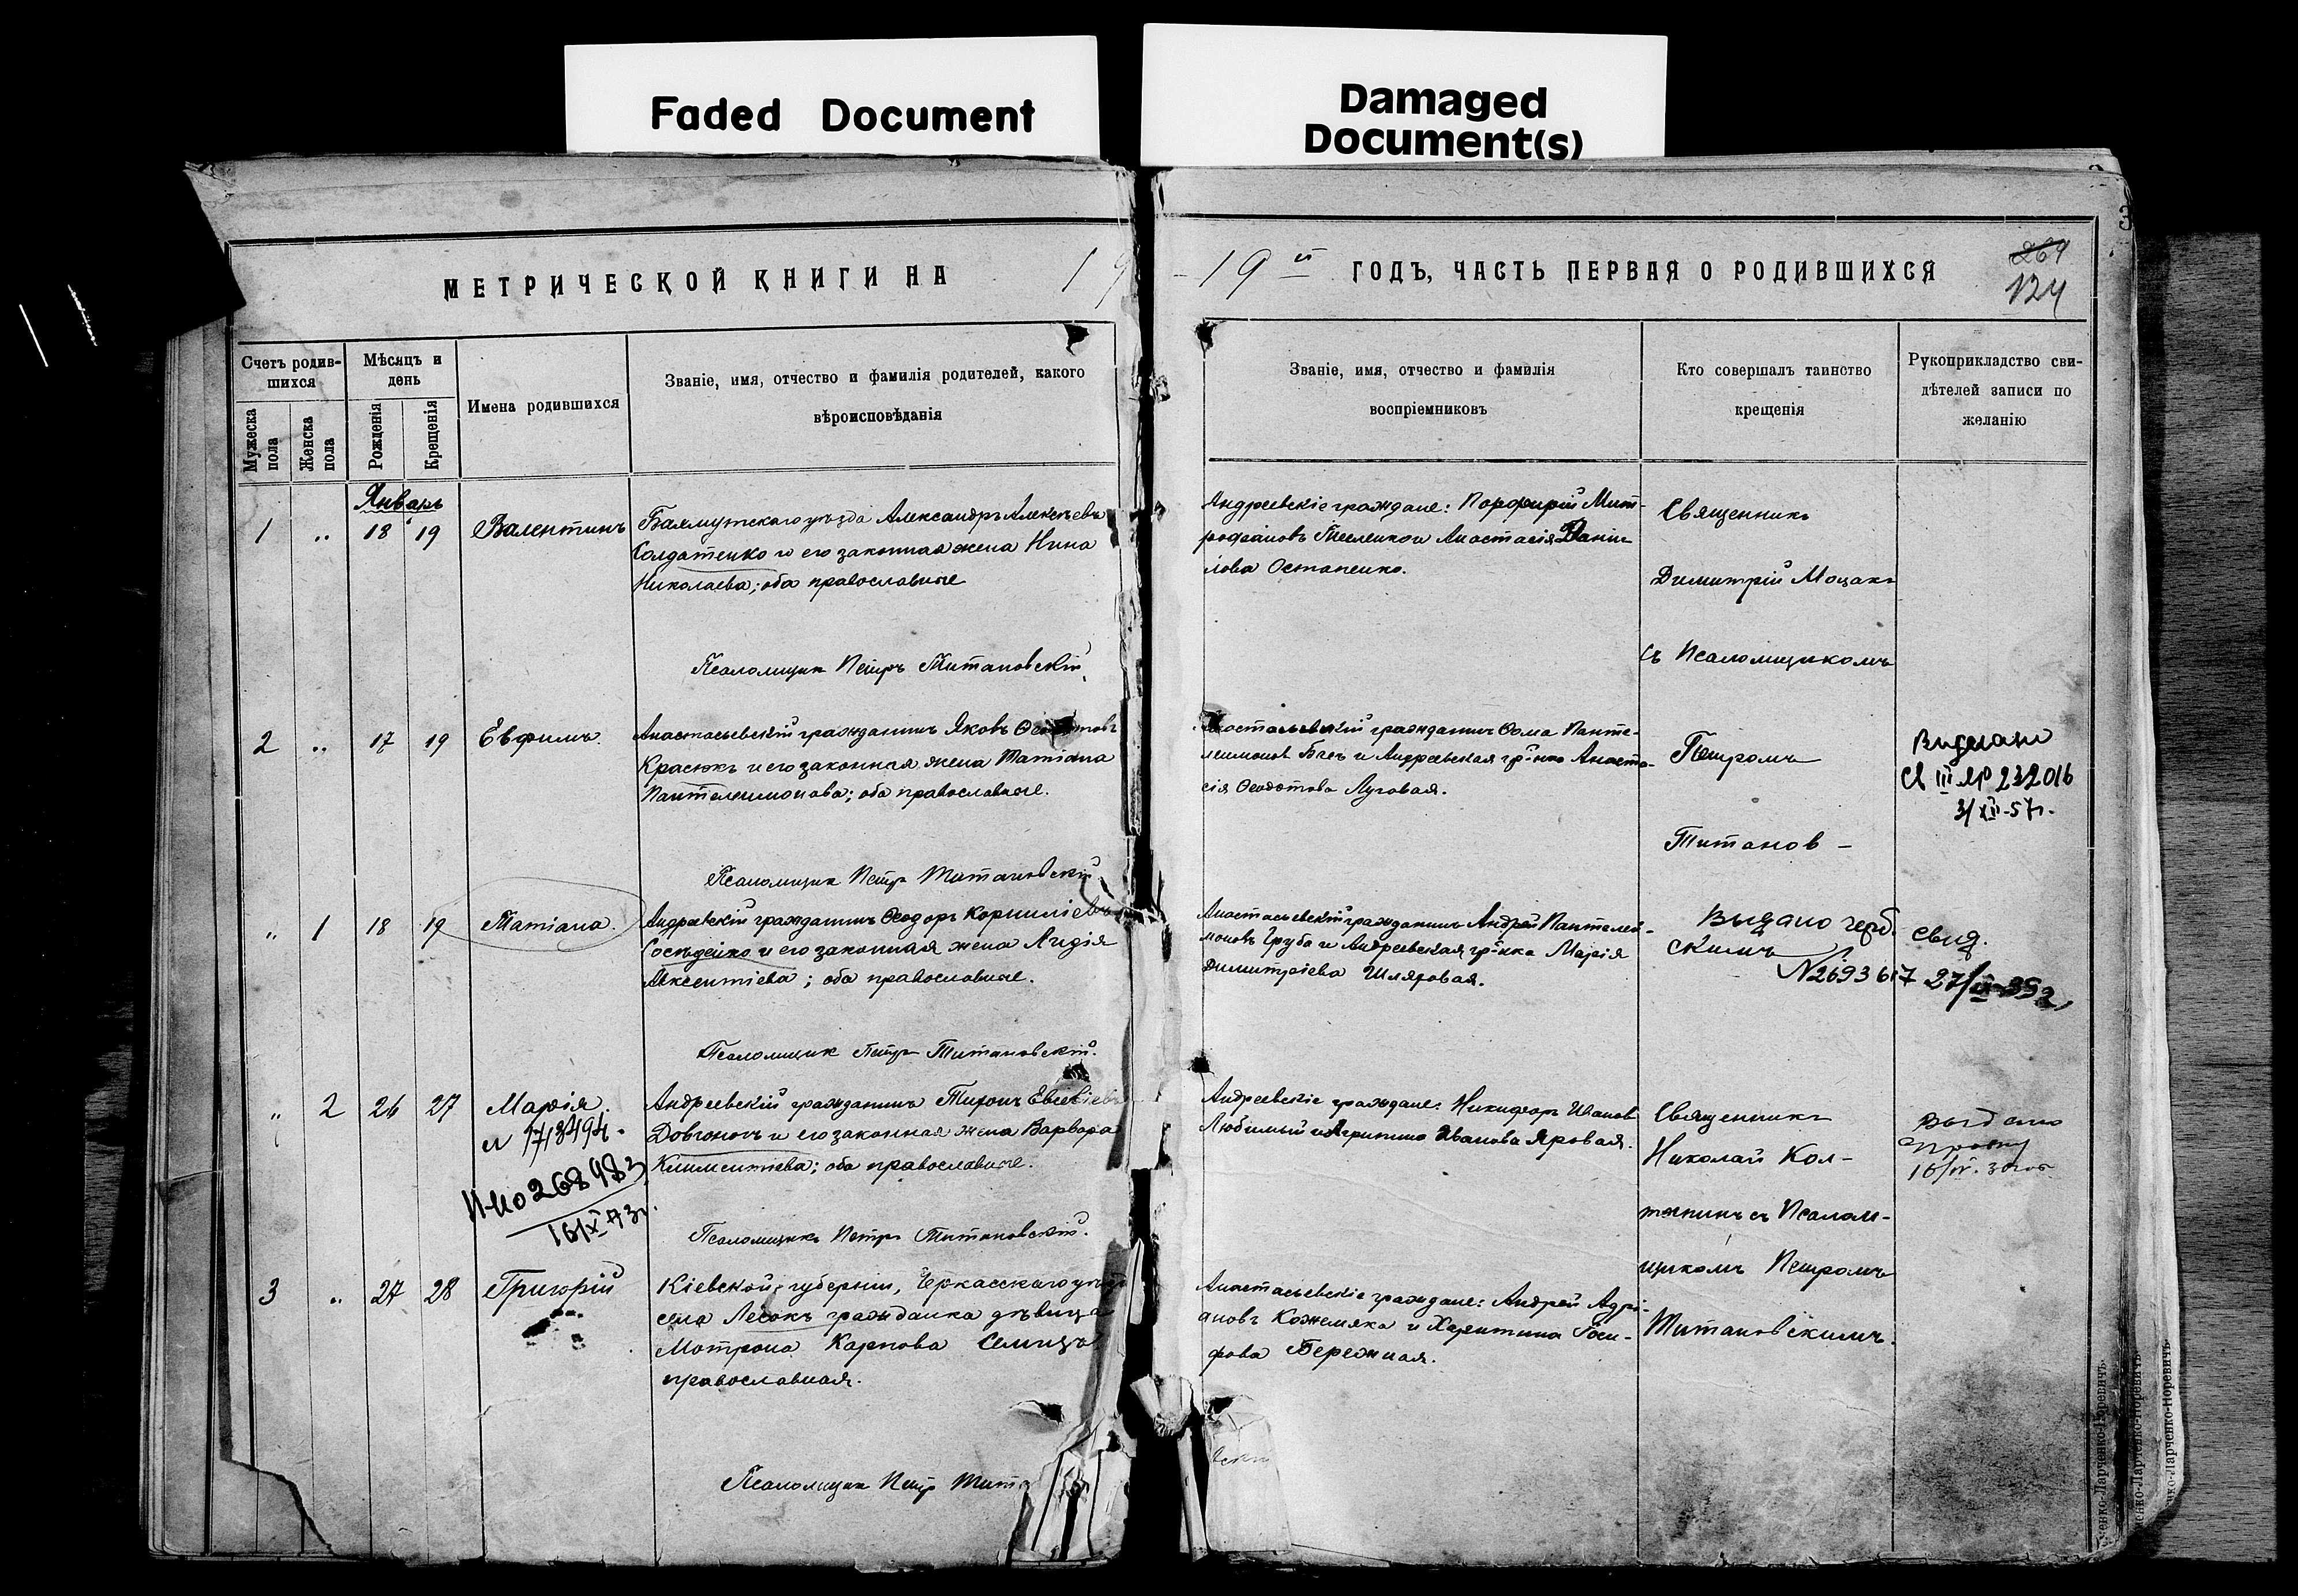 Faded Document
Damaged
Document(s)
МЕТРИЧЕСКОЙ КНИГИ НА 19
19 й ГОДЪ, ЧАСТЬ ПЕРВАЯ О РОДИВШИХСЯ
264
124
Счетъ родив-
шихся
Мужеска
пола
Женска
пола
Мѣсяцъ и
день
Рожденія
Крещенія
Имена родившихся
Званіе, имя, отчество и фамилія родителей, какого
вѣроисповѣданія
Званіе, имя, отчество и фамилія
воспріемниковъ
Кто совершалъ таинство
крещенія
Рукоприкладство сви-
дѣтелей записи по
желанію
Январь
1 „ 18 19 Валентинъ
Бахмутскаго уѣзда Александръ Алексѣевъ
Солдатенко и его законная жена Нина
Николаева; оба православные
Псаломщикъ Петръ Титановскій
Андреевскіе граждане: Порфирій Мит-
рофановъ и Анастасія Дани-
лова Остапенко.
Священникъ
Димитрій Моцакъ
съ Псаломщикомъ
2 „ 17 19 Евфимъ.
Анастасьевскій гражданинъ Яковъ
Красюкъ и его законная жена Татіана
Пантелеимонова; оба православные.
Псаломщикъ Петръ Титановскій
Анастасьевскій гражданинъ Ѳома Панте-
леимоновъ и Андреевская гр-нка Анаста-
сія Ѳеодотова Луговая.
Петромъ
Титанов-
Видано
Св III ЯР 232016
3/XII-57г.
„ 1 18 19 Татіана.
Андреевскій гражданинъ Ѳеодоръ Корниліевъ
Сосѣдейко и его законная жена Лидія
Авксентіева; оба православные.
Псаломщикъ Петръ Титановскій.
Анастасьевскій гражданинъ Андрей Пантелей-
моновъ Груба и Андреевская гр-нка Марія
Димитріева Шляховая.
скимъ
Выдано герб. свид.
№ 2693617 27/
„ 2 26 27 Марія.
Андреевскій гражданинъ Тиронъ
Довгоночъ и его законная жена Варвара
Климентіева; оба православные.
Псаломщикъ Петръ Титановскій.
268483
16/X 73г.
Андреевскіе граждане: Никифоръ Ивановъ
Любимый и Агрипина Иванова Яровая.
Священникъ
Николай Кол-
тынинъ съ Псалом-
щикомъ Петромъ
Титановскимъ.
Выдано
16/IV. 30
3 „ 27 28 Григорій
Кіевской губерніи, Черкасскаго уѣзда
села Лесокъ гражданка дѣвица
Мотрона Карпова
православная.
Псаломщикъ Петръ Тита
Анастасьевскіе граждане: Андрей Адрі-
ановъ Кожемяка и Харитина Іоси-
фова Бережная.